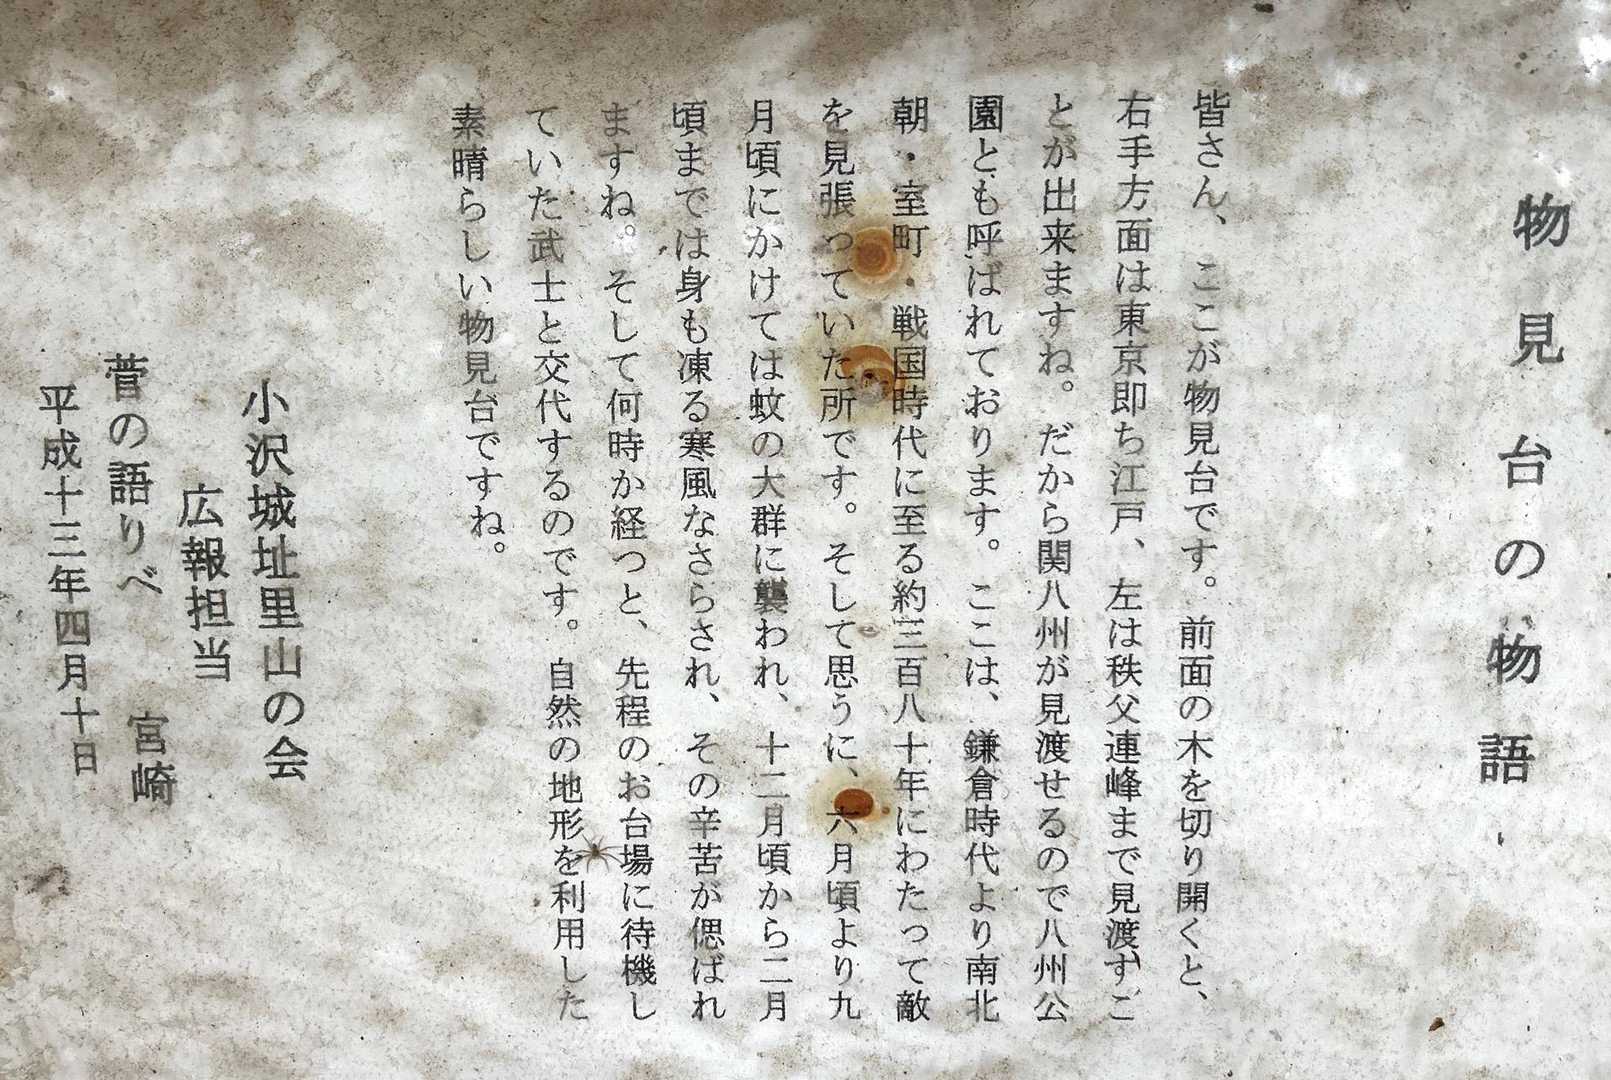 物見台の物語
皆さん、ここが物見台です。前面の木を切り開くと、
右手方面は東京即ち江戸、左は秩父連峰まで見渡すこ
とが出来ますね。だから関八州が見渡せるので八州公
園とも呼ばれております。ここは、鎌倉時代より南北
朝・室町・戦国時代に至る約三百八十年にわたって敵
を見張っていた所です。そして思うに、六月頃より九
月頃にかけては蚊の大群に襲われ、十二月頃から二月
頃までは身も凍る寒風なさらされ、その辛苦が偲ばれ
ますね。そして何時か経つと、先程のお台場に待機し
ていた武士と交代するのです。自然の地形を利用した
素晴らしい物見台ですね。
小沢城址里山の会
広報担当
菅の語りべ 宮崎
平成十三年四月十日